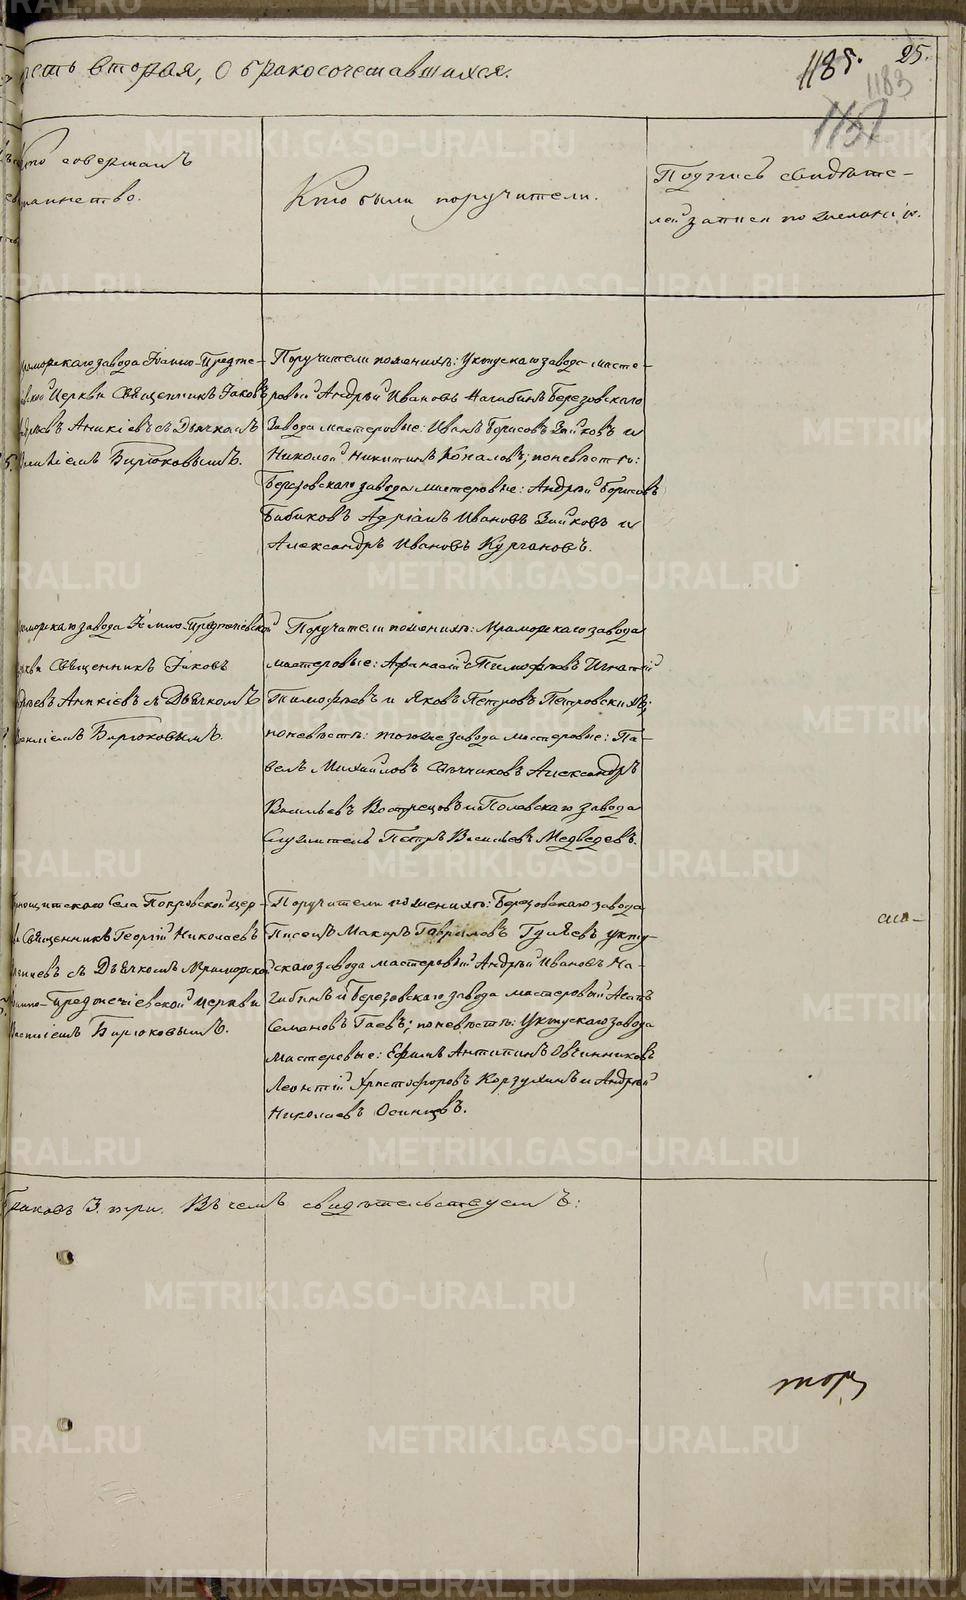 сть вторая, о бракосочетавшихся.
1185.
25.
1183
Кто совершалъ
таинство.
Кто были поручители.
Подпись свидѣте-
лей записи по желанію.
раморскаго завода Іоанно-Предте-
Церкви Священникъ Іаковъ
Аникіевъ съ Дьячкомъ
Бирюковымъ.
Поручители по женихѣ: Уктускаго завода масте-
ровой Андрей Ивановъ Нагибинъ Березовскаго
Завода мастеровые: Иванъ Борисовъ Зайковъ и
Николай Никитинъ Коналовъ; по невѣстѣ:
Березовскаго завода мастеровые: Андрей Борисовъ
Бабиковъ Адріанъ Ивановъ Зайковъ и
Александръ Ивановъ Кургановъ.
раморскаго завода Іоанно-Предтечевской
ркви Священникъ Іаковъ
Аникіевъ съ Дьячкомъ
Бирюковымъ.
Поручители по женихѣ: Мраморскаго завода
мастеровые: Афанасій Тимофѣевъ Игнатій
Тимофѣевъ и Яковъ Петровъ Петровскихъ;
по невѣстѣ: того же завода мастеровые: Па-
велъ Михайловъ Свѣчниковъ Александръ
Васильевъ Вострецовъ и Полевскаго завода
Служитель Петръ Васильевъ Медведевъ.
Села Покровской цер-
Священникъ Георгій Николаевъ
съ Дьячкомъ Мраморской
Предтечіевской церкви
Бирюковымъ.
Поручители по женихѣ: Березовскаго завода
Писецъ Макаръ Гавриловъ Гуляевъ Укту-
скаго завода мастеровой Андрей Ивановъ На-
гибинъ и Березовскаго завода мастеровый
Семеновъ Гаевъ; по невѣстѣ: Уктускаго завода
Мастеровые: Ефимъ Антипинъ Овчинниковъ
Леонтій Христофоровъ Корзухинъ и Андрей
Николаевъ Осинцовъ.
браковъ 3. три. Въ чемъ свидѣтельствуемъ:
METRIKI.GASO-URAL.RU